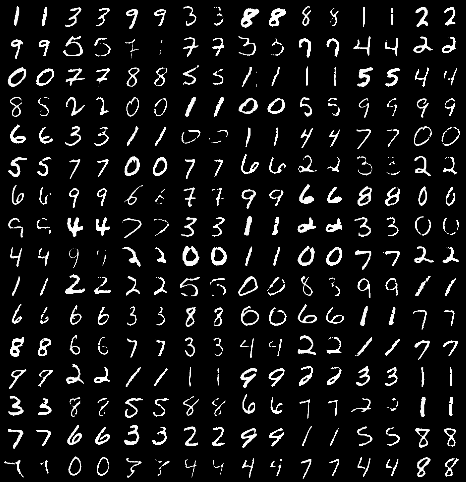 1 1 3 3 9 9 3 3 8 8 8 8 1 1 2 2
9 9 5 5 7 1 7 7 3 3 7 7 4 4 2 2
0 0 7 7 8 8 5 5 1 1 1 1 5 5 4 4
8 5 2 2 0 0 1 1 0 0 5 5 9 9 9 9
6 6 3 3 1 1 0 0 1 1 4 4 7 7 0 0
5 5 7 7 0 0 7 7 6 6 2 2 3 3 2 2
6 6 9 9 6 6 7 7 9 9 6 6 8 8 0 0
9 9 4 4 7 7 3 3 1 1 2 2 3 3 0 0
4 4 9 9 2 2 0 0 1 1 0 0 7 7 2 2
1 1 2 2 2 2 5 5 0 0 8 3 9 9 1 1
6 6 6 6 3 3 8 8 0 0 6 6 1 1 7 7
8 8 6 6 7 7 3 3 4 4 2 2 1 1 7 7
9 9 2 2 1 1 1 1 9 9 2 2 3 3 1 1
3 3 8 8 5 5 8 8 6 6 7 7 2 2 1 1
7 7 6 6 3 3 2 2 9 9 1 1 5 5 8 8
7 7 0 0 3 3 4 4 4 4 7 7 4 4 8 8